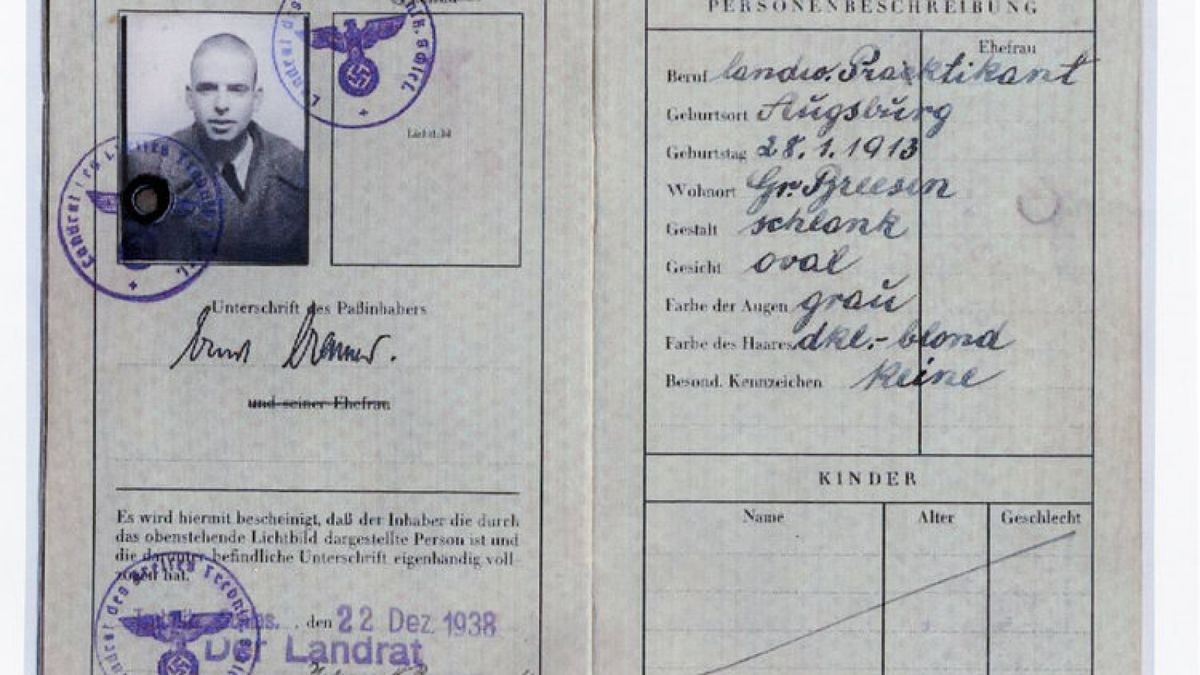 Unterschrift des Paßinhabers
Ernst Cramer.
und seiner Ehefrau
Es wird hiermit bescheinigt, daß der Inhaber die durch
das obenstehende Lichtbild dargestellte Person ist und
die darunter befindliche Unterschrift eigenhändig voll-
zogen hat.
den 22 Dez. 1938
Der Landrat
PERSONENBESCHREIBUNG
Ehefrau
Beruf landw. Praktikant
Geburtsort Augsburg
Geburtstag 28.1.1913
Wohnort Gr. Breesen
Gestalt schlank
Gesicht oval
Farbe der Augen grau
Farbe des Haares dkl.-blond
Besond. Kennzeichen keine
KINDER
Name Alter Geschlecht